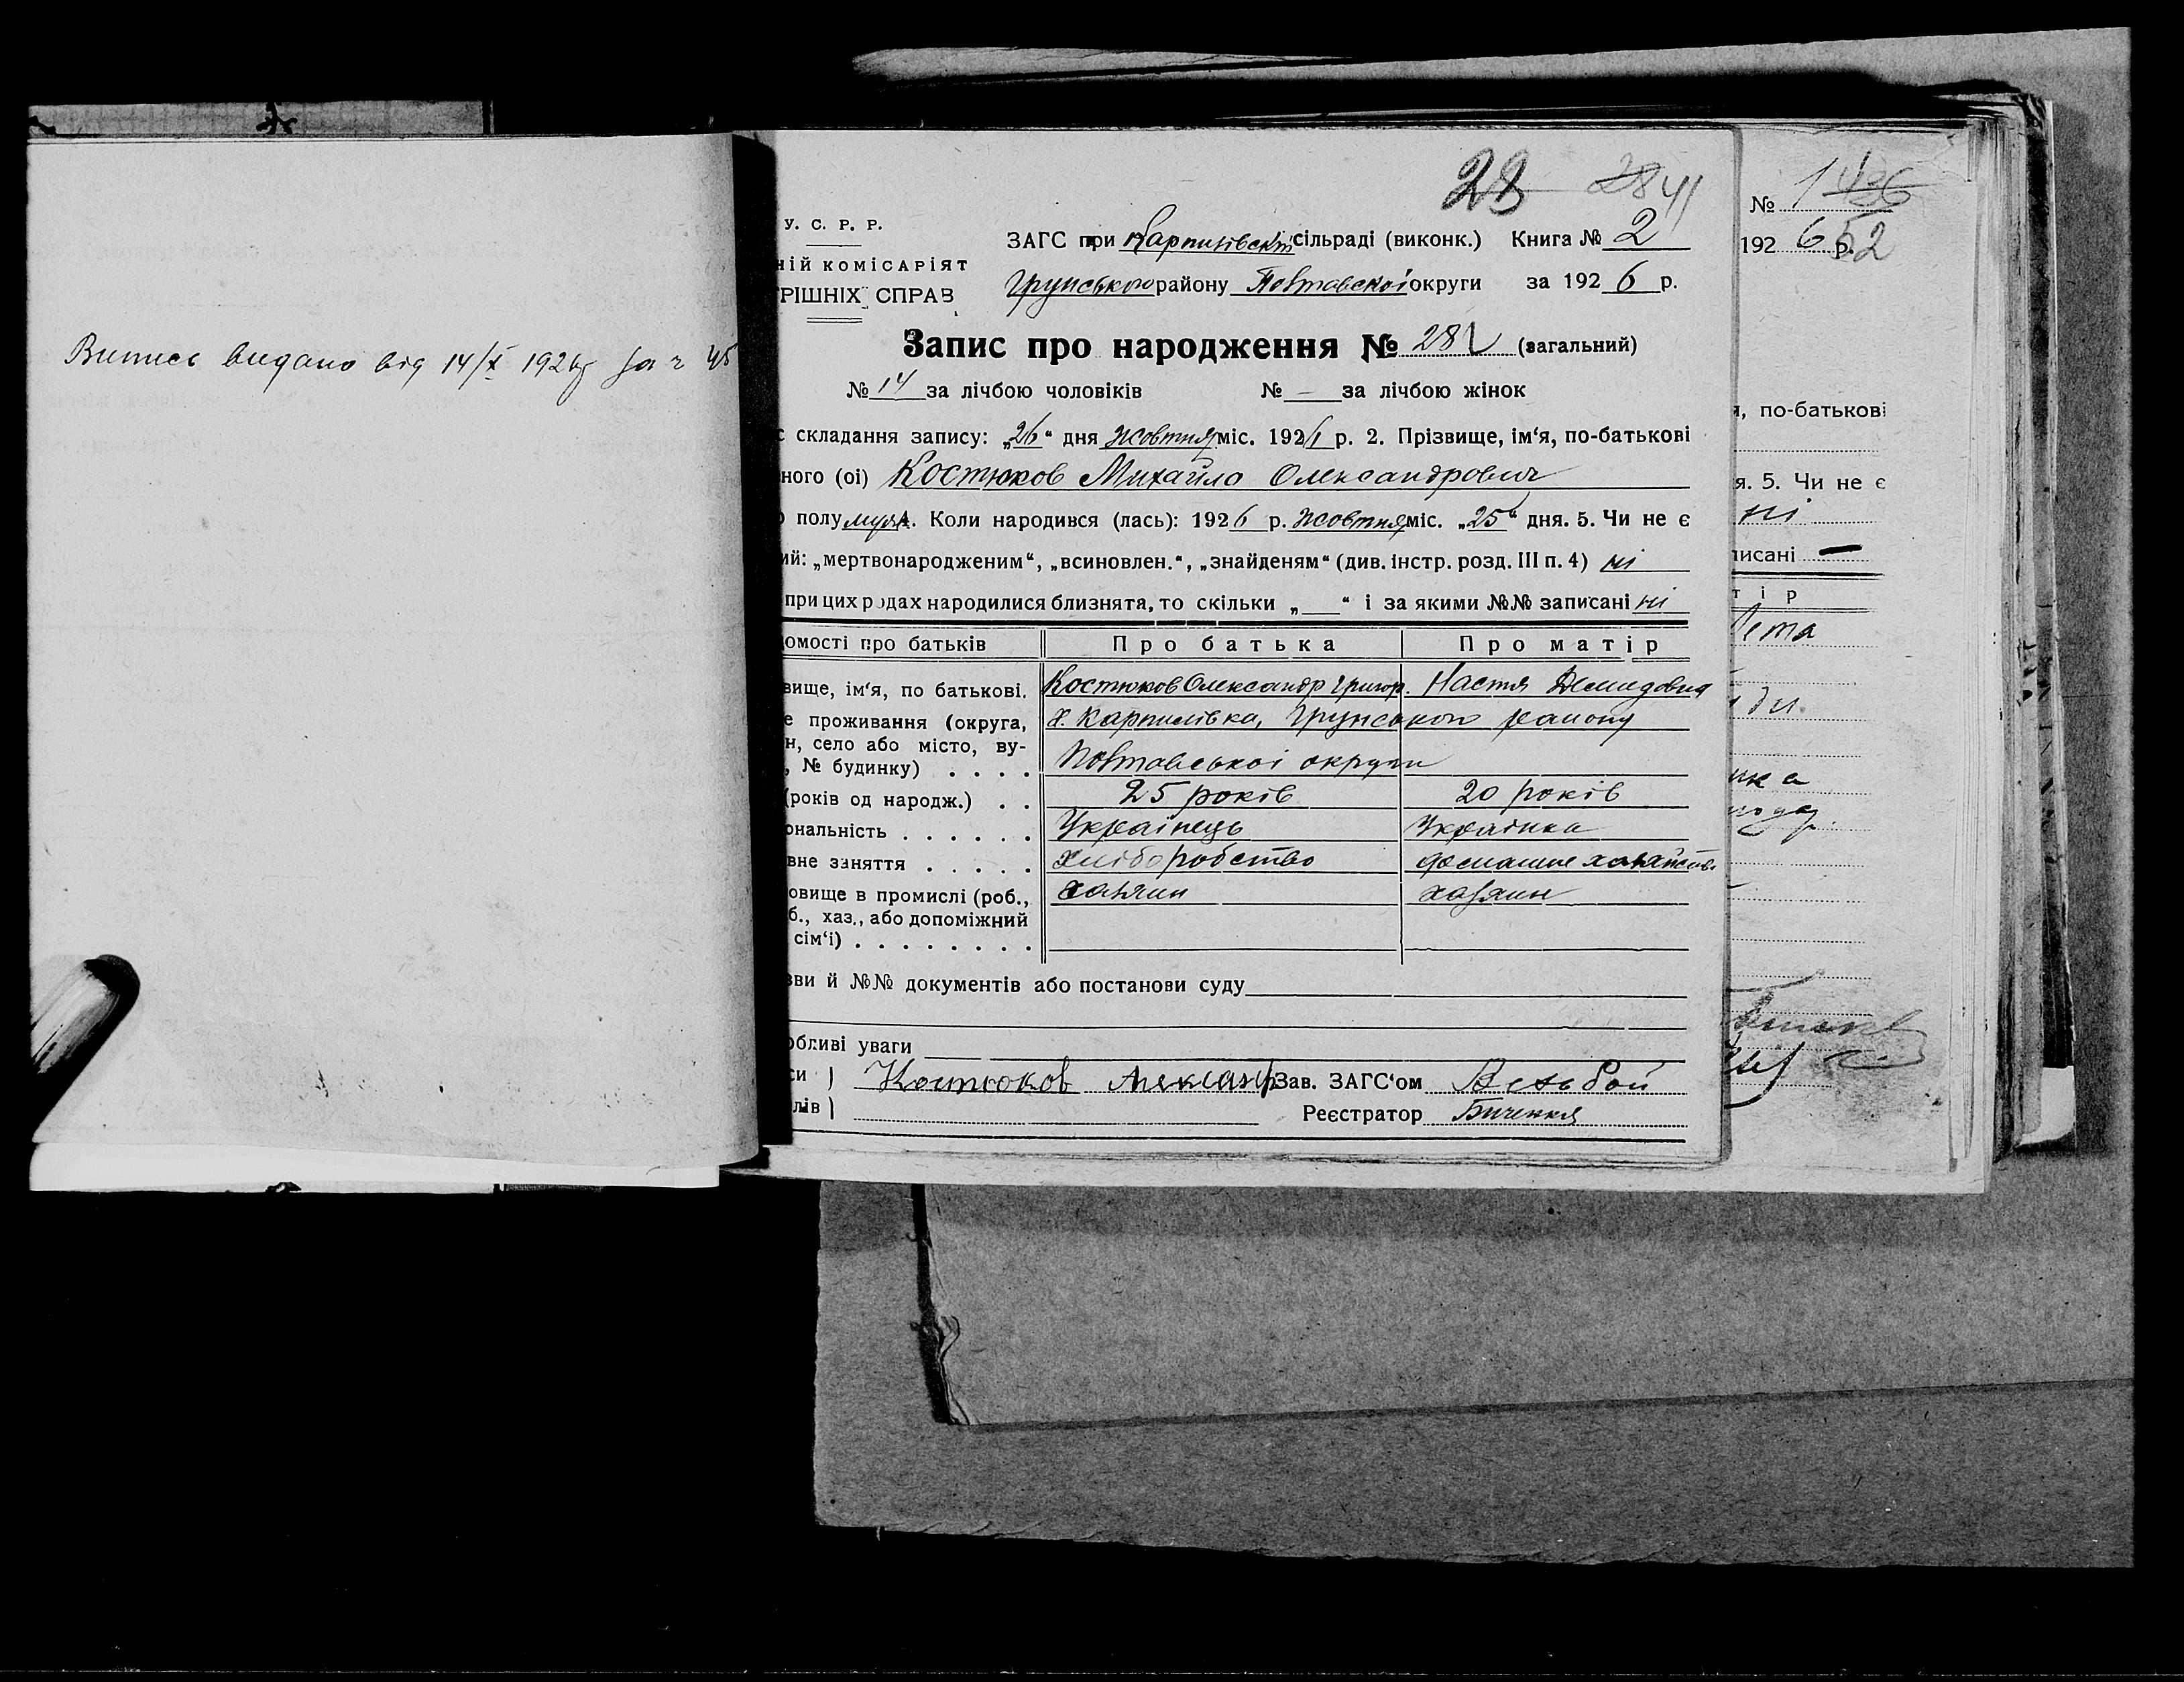 Випись видано від 14/X 192 за ч 45
28 28 41
У. С. Р. Р.
ній комісаріят
рішніх справ
ЗАГС при Карпилівскій сільраді (виконк.) Книга № 2
Грунського району Полтавської округи за 1926 р.
Запис про народження № 28 (загальний)
№ 14 за лічбою чоловіків № — за лічбою жінок
с складання запису: „26“ дня жовтня міс. 1926 р. 2. Прізвище, ім‘я, по-батькові
ного (ої) Костюков Михайло Олександрович
полу муж. Коли народився (лась): 1926 р. жовтня міс. „25“ дня. 5. Чи не є
ий: „мертвонародженим“, „всиновлен.“, „знайденям“ (див. інстр. розд. III п. 4) ні
при цих родах народилися близнята, то скільки „___“ і за якими №№ записані ні
омості про батьків Про батька Про матір
вище, ім‘я, по батькові. Костюков Олександр Григор. Настя Демидовна
е проживання (округа, х. Карпилівка, Грунського району
н, село або місто, ву-
, № будинку) . . . . Полтавської округи
(років од народж.) . . 25 років 20 років
ональність . . . . . . Українець Українка
вне заняття . . . . . хліборобство домашнє
овище в промислі (роб., хазяин хазяин
б., хаз., або допоміжний
сім‘ї) . . . . . . . .
зви й №№ документів або постанови суду
обливі уваги
си ) Костюков Александр Зав. ЗАГС‘ом
лів ) Реєстратор
№ 1 436
1926 р. 52
я, по-батькові
я. 5. Чи не є
ні
писані —
тір